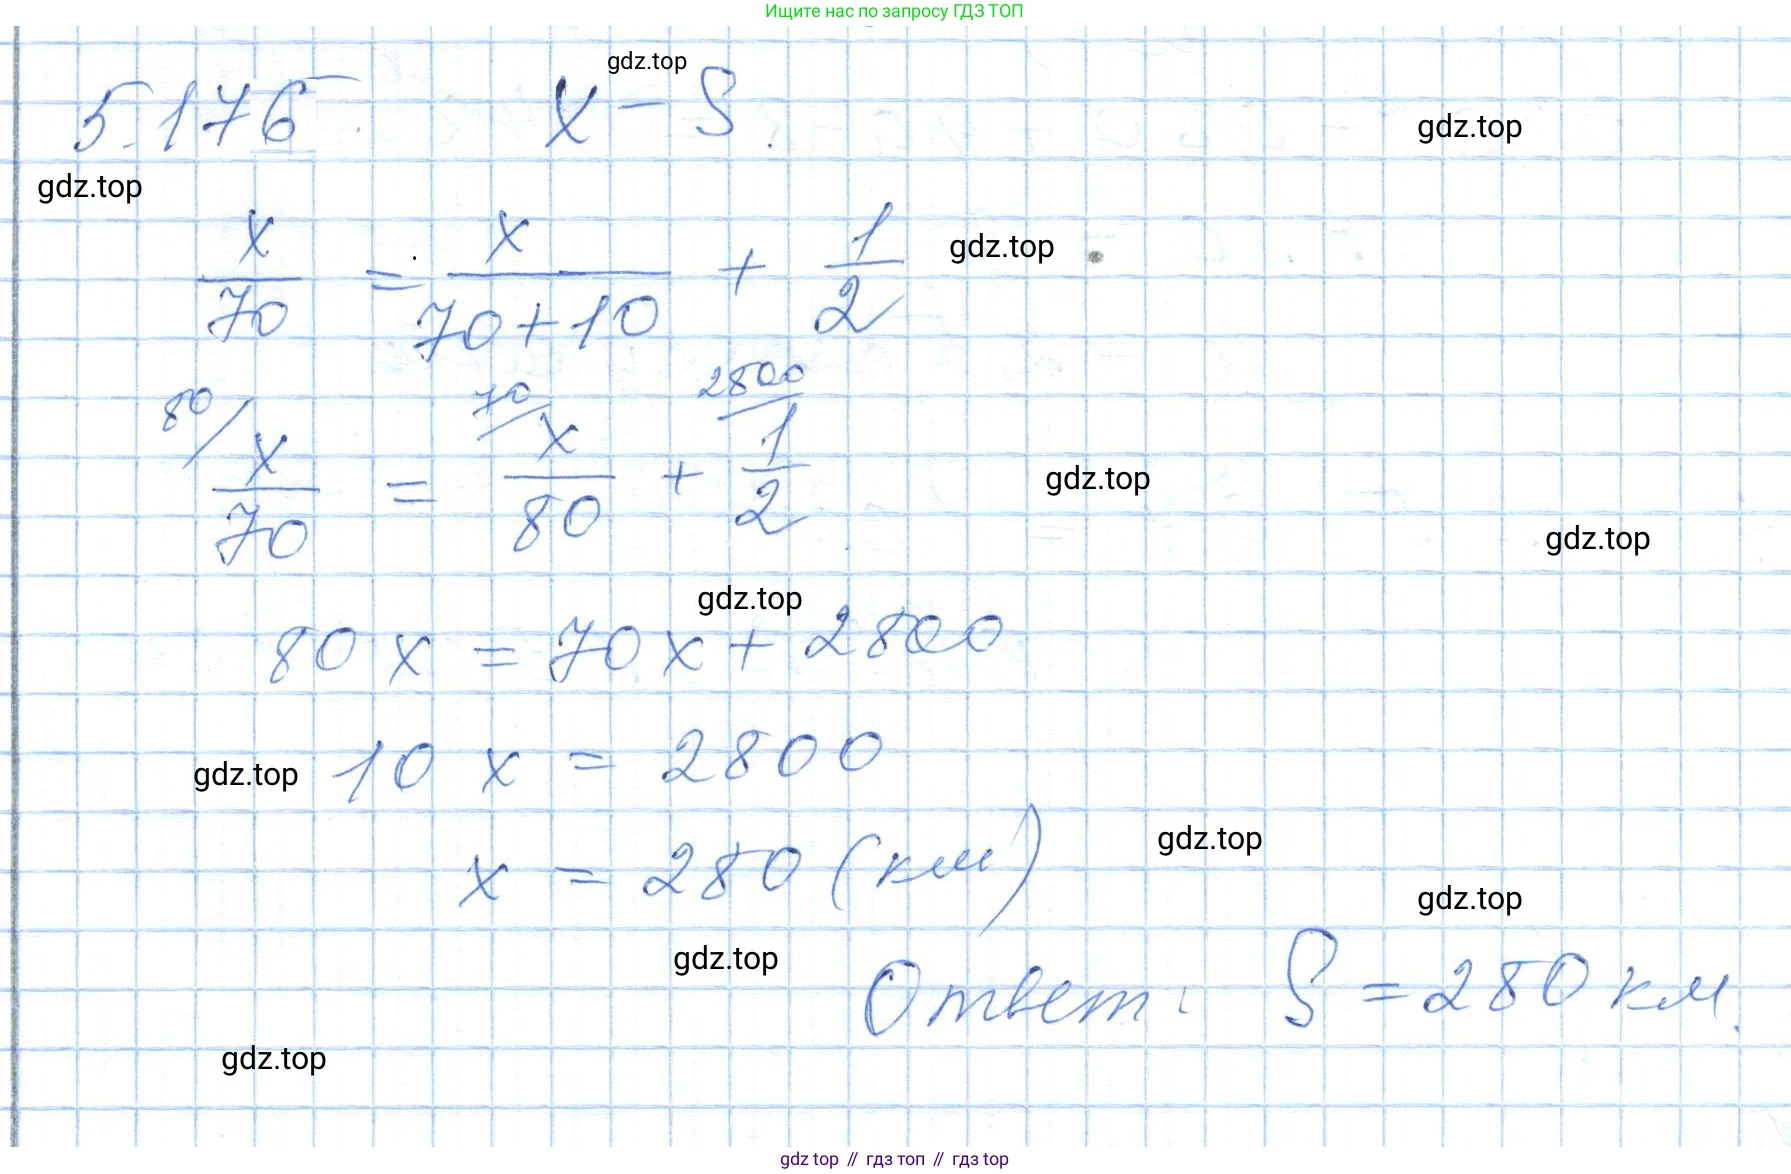 Ищите нас по запросу ГДЗ ТОП
gdz.top
5.176 x – S.
gdz.top
gdz.top
x/70 = x/(70+10) + 1/2
gdz.top
80/ 70/ 2800/
x/70 = x/80 + 1/2
gdz.top
gdz.top
gdz.top
80x = 70x + 2800
10x = 2800
gdz.top
gdz.top
x = 280 (км)
gdz.top
gdz.top
Ответ: S = 280 км.
gdz.top
gdz top // гдз топ // гдз top